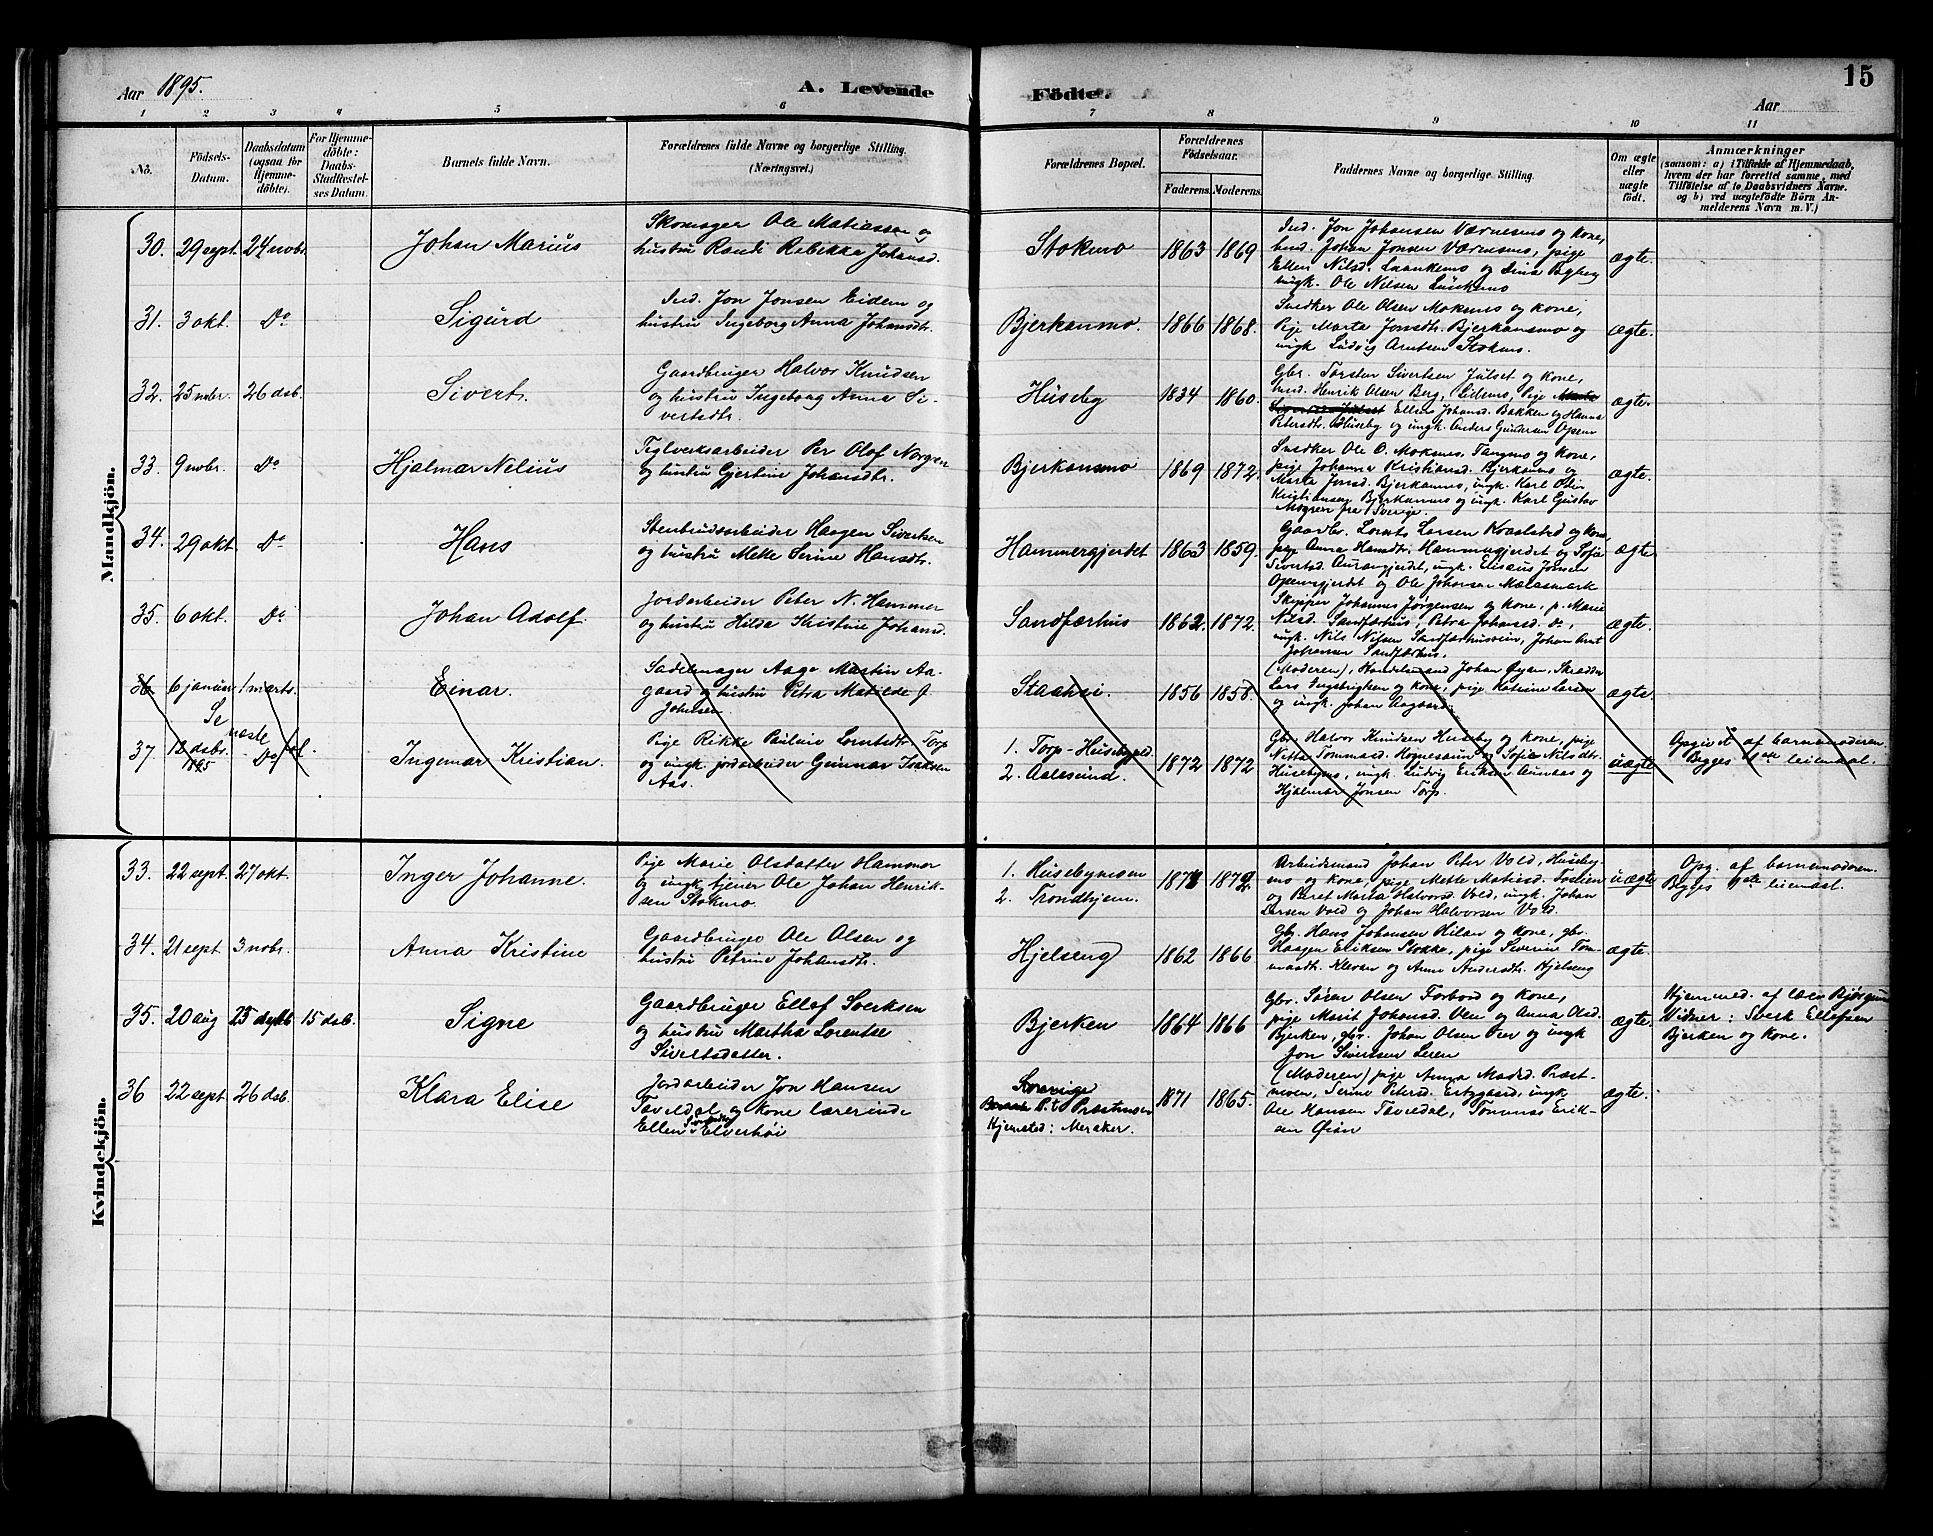 Aar 1895.
A. Levende Födte.
15
Aar
1 2 3 4 5 6 7 8 9 10 11
No.
Födsels-Datum.
Daabsdatum (ogsaa for Hjemmedöbte).
For Hjemmedöbte: Daabs-Stadfæstelses Datum.
Barnets fulde Navn.
Forældrenes fulde Navne og borgerlige Stilling. (Næringsvei.)
Forældrenes Bopæl.
Forældrenes Födselsaar.
Faderens. Moderens.
Faddernes Navne og borgerlige Stilling.
Om ægte eller uægte födt.
Anmærkninger
(saasom: a) i Tilfælde af Hjemmedaab,
hvem der har forrettet samme, med
Tilföielse af to Daabsvidners Navne.
og b) ved uægtefödte Börn Anmelderens Navn m. V.)
Mandkjön.
30. 29 sept. 24 novbr. Johan Marius
Skomager Ole Matiassen og
hustru Randi Rebikka Johansd.
Stokmo 1863 1869
Ind. Jon Johansen Værnesmo og kone,
ind. Johan Jonsen Værnesmo, pige
Ellen Nilsd. Laankemo og
ungk. Ole Nilsen
ægte.
31. 3 okt. Do Sigurd
Ind. Jon Jonsen Eidem og
hustru Ingeborg Anna Johansdtr.
Bjerkanmo. 1866 1868.
Snedker Ole Olsen Moksnes og kone,
Pige Marta Jonsdtr. Bjerkansmo og
ungk Ludvig Arntsen Stokmo.
ægte.
32. 25 novbr. 26 deb. Sivert.
Gaardbruger Halvor Knudsen
og hustru Ingeborg Anna Si-
vertsdtr.
Huseby 1834 1860.
Gbr. Torsten Sivertsen Julset og kone,
ind. Henrik Olsen Berg, Eidemo, Pige
Ellen Johansd. Bakken og Hanna
Petersdtr. Huseby og ungk. Anders Gundersen
ægte.
33. 9 novbr. Do Hjalmar Nelius
Teglverksarbeider Per Olof Norgren
og hustru Gjertine Johansdtr.
Bjerkansmo 1869 1872.
Snedker Ole O. Moksnes, Tangmo og kone,
pige Johanna Kristiansd. Bjerkanmo og
Marta Jonsd. Bjerkanmo, ungk. Karl Odin
Kristiansen Bjerkanmo og ungk. Karl Gustav
fra Sverige.
ægte.
34. 29 okt. Do Hans
Stenbrudsarbeider Haagen Sivertsen
og hustru Mette Serine Hansdtr.
Hammergjerdet 1863 1859.
Gaardbr. Lornts Larsen og kone,
pige Anna Hansdtr. Hammergjerdet og Sofie
Sivertsd. Aurangjerdet, ungk. Elisæus Jonsen
Opemgjerdet og Ole Johansen
ægte.
35. 6 okt. Do Johan Adolf.
Jordarbeider Peter N. Hammer
og hustru Hilda Kristine Johansd.
Sandfærhus 1862. 1872.
Skipper Johannes Jørgensen og kone, p. Marie
Nilsd. Sandfærhus, Petra Johansd. do,
ungk. Nils Nilsen Sandfærhusveien, Johan Arnt
Johansen Sandfærhus.
ægte.
36 6 januar 1 marts. Einar.
Sadelmager Aage Martin Aa-
gaard og hustru Petra Matilde J.
Johnsen.
1856 1858.
(Moderen), Handelsmand Johan Øyan, Skrædder
Lars Ingebrigtsen og kone, pige Katrine Larsen
og ungk. Johan Aagaard.
ægte.
Se næste fol.
37. 12 debr. 1895 Do Ingemar Kristian.
Pige Rikke Pauline Lorntsdtr Torp
og ungk. jordarbeider Gunnar Isaksen
Aas.
1. Torp - Husebyald.
2. Aalesund.
1872 1872
Gbr. Halvor Knudsen Huseby og kone, pige
Netta Tommasd. og Sofie Nilsdtr.
Husebymo, ungk. Ludvig Eriksen Aunaas og
Hjalmar Jonsen Torp.
uægte
Opgivet af barnemoderen.
Begges 1ste leiermaal.
Kvindekjön.
33. 22 sept. 27 okt. Inger Johanne.
Pige Marie Olsdatter Hammer
og ungk tjener Ole Johan Henrik-
sen Stokmo.
1. Husebymoen
2. Trondhjem.
1871 1872
Arbeidsmand Johan Peter Vold, Huseby-
mo og kone, pige Mette Matiasd.
og Beret Marta Halvorsd. Vold, ungk. Johan
Larsen Vold og Johan Halvorsen Vold.
uægte
Opg. af barnemoderen.
Begges 1ste leiermaal.
34. 21 sept 3 nobr. Anna Kristine
Gaardbruger Ole Olsen og
hustru Petrine Johansdtr.
Hjelseng 1862 1866
Gbr. Hans Johansen Hilen og kone, gbr.
Haagen Eriksen Stokke, pige Siverine Tom-
masdtr. Kleven og Anna Andersdtr. Hjelseng
ægte.
35. 20 aug 25 15 deb. Signe
Gaardbruger Ellef Sverksen
og hustru Martha Lorentse
Sivertsdatter.
Bjerken 1864 1866
Gbr. Søren Olsen Forbord og kone,
pige Marit Johansd. Ven og Anna Olsd.
Bjerken, gbr. Johan Olsen Ven og ungk
Jon Sivertsen Leren
ægte.
Hjemmed. af læra
Vidner: Sverk Ellefsen
Bjerken og kone.
36 22 sept 26 deb. Klara Elise
Jordarbeider Jon Hansen
Tevedal og kone lærerinde
Ellen Elverhøi
Sverrige
P.t. Præstmoen
Hjemsted: Meraker.
1871 1865.
(Moderen) pige Anna Madsd. Præst-
moen, Serine Petersd. ungk
Ole Hansen Tevedal, Tommas Erik-
sen Øian
ægte.